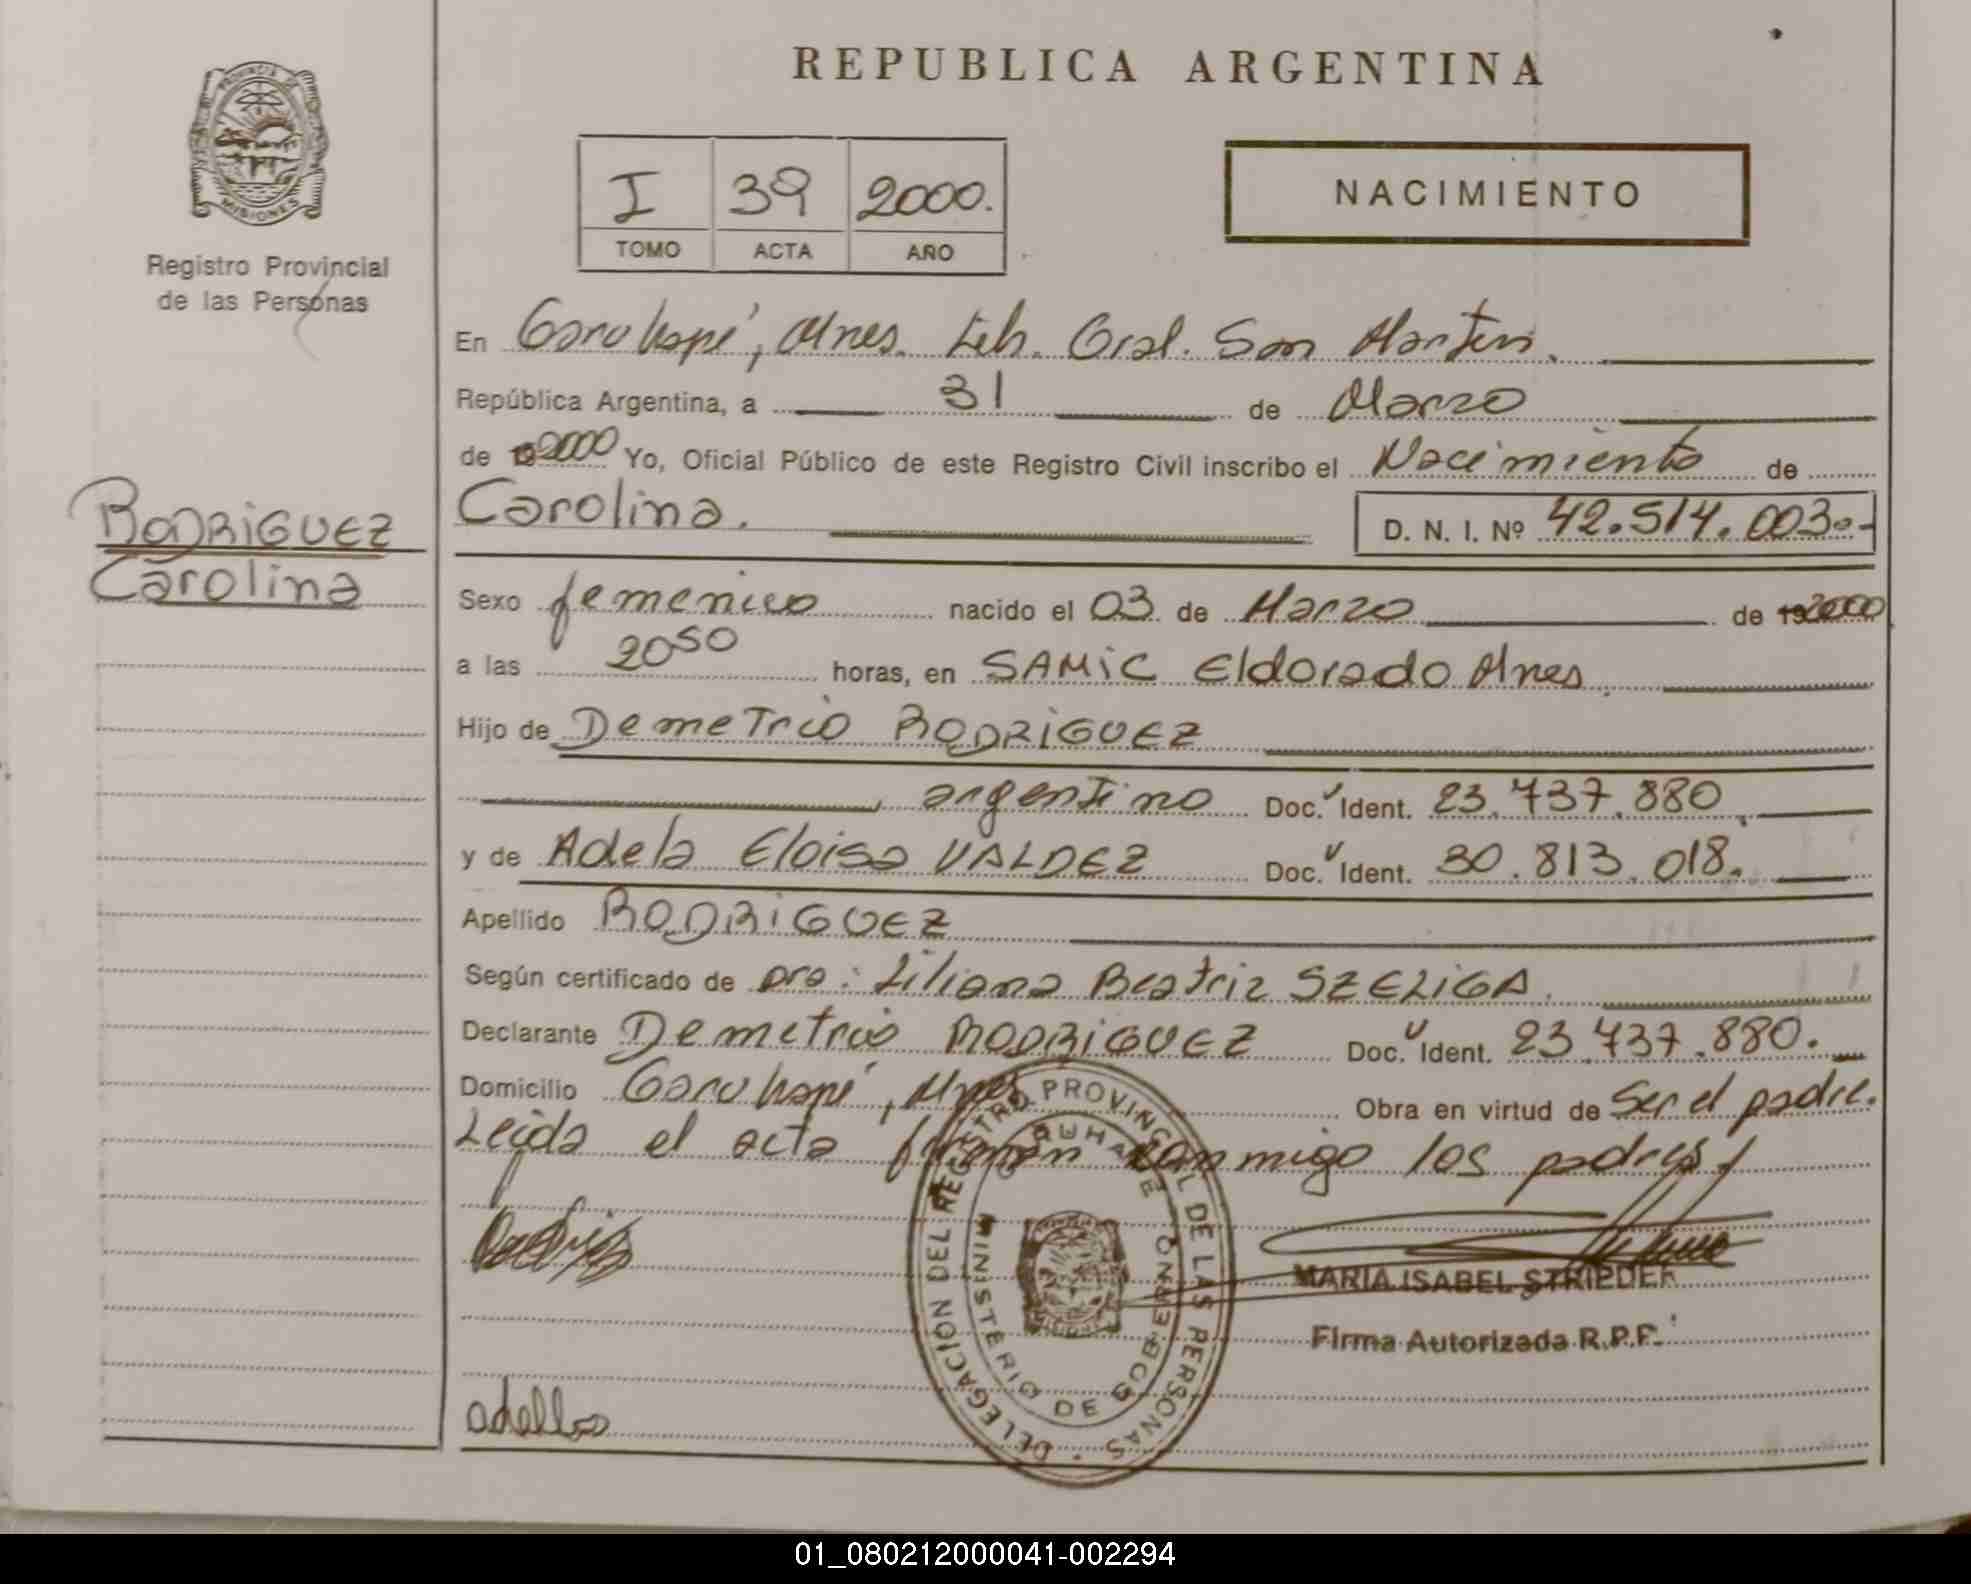 REPUBLICA ARGENTINA
PROVINCIA DE MISIONES
Registro Provincial
de las Personas
I 39 2000.
TOMO ACTA AÑO
NACIMIENTO
En Garuhapé, Mnes. Lib. Gral. San Martin.
República Argentina, a 31 de Marzo
de 2000 Yo, Oficial Público de este Registro Civil inscribo el Nacimiento de
RODRIGUEZ
Carolina
Carolina. D. N. I. Nº 42.514.003.-
Sexo femenino nacido el 03 de Marzo de 2000
a las 20 50 horas, en SAMIC Eldorado Mnes.
Hijo de Demetrio RODRIGUEZ
, argentino Doc. Ident. 23.737.880
y de Adela Eloisa VALDEZ Doc. Ident. 30.813.018.
Apellido RODRIGUEZ
Según certificado de Dra: Liliana Beatriz SZELIGA.
Declarante Demetrio RODRIGUEZ Doc. Ident. 23.737.880.
Domicilio Garuhapé, Mnes Obra en virtud de Ser el padre.
Leida el acta firman conmigo los padres.
DELEGACION DEL REGISTRO PROVINCIAL DE LAS PERSONAS
GARUHAPE
MINISTERIO DE GOBIERNO
MARIA ISABEL STRIEDER
Firma Autorizada R.P.P.
01_080212000041-002294